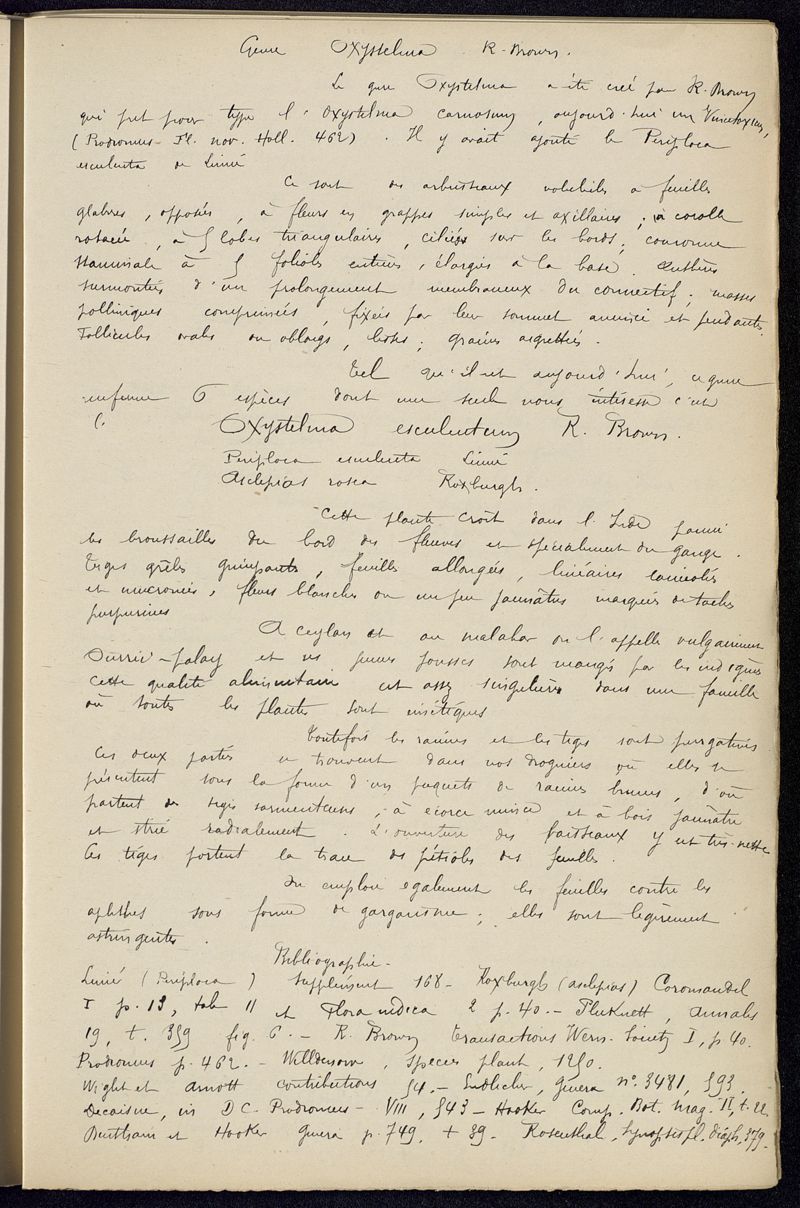 Genre Oxystelma R. Brown.
Le genre Oxystelma a été créé par R. Brown
qui prit pour type l'Oxystelma carnosum, aujourd'hui un Vincetoxicum,
(Prodromus Fl. nov. Holl. 462). Il y avait ajouté le Periploca
esculenta de Linné
Ce sont des arbrisseaux volubiles à feuilles
glabres, opposées, à fleurs en grappes simples et axillaires; à corolle
rotacée, à 5 lobes triangulaires, ciliés sur les bords; couronne
staminale à 5 folioles entières, élargies à la base. Anthères
surmontées d'un prolongement membraneux du connectif; masses
polliniques comprimées, fixées par leur sommet aminci et pendantes.
Follicules ovales ou oblongs, lisses; graines aigrettées.
Tel qu'il est aujourd'hui, ce genre
renferme 6 espèces dont une seule nous intéresse c'est
l'
Oxystelma esculentum R. Brown.
Periploca esculenta Linné
Asclepias rosea Roxburgh.
Cette plante croît dans l'Inde parmi
les broussailles du bord des fleuves et spécialement du Gange.
Tiges grêles grimpantes, feuilles allongées, linéaires lancéolées
et mucronées, fleurs blanches ou un peu jaunâtres marquées de taches
purpurines
A Ceylan et au Malabar on l'appelle vulgairement
-palay et ses jeunes pousses sont mangés par les indigènes
cette qualité alimentaire est assez singulière dans une famille
où toutes les plantes sont émétiques
Toutefois les racines et les tiges sont purgatives.
Ces deux parties se trouvent dans nos droguiers où elles se
présentent sous la forme d'un paquets de racines brunes, d'où
partent des tiges sarmenteuses, à écorce mince et à bois jaunâtre
et strié radialement. L'ouverture des vaisseaux y est très nette
Ces tiges portent la trace des pétioles des feuilles.
On emploie également les feuilles contre les
aphthes sous forme de gargarisme; elles sont légèrement
astringentes.
Bibliographie.
Linné (Periploca) Supplément 168 - Roxburgh (asclepias) Coromandel
I p. 13, tab 11 et Flora indica 2 p. 40. - Pluknett, Annales
19, t. 359 fig. 6. - R. Brown Transactions Wern. Society I, p 40.
Prodromus p. 462. - Willdenow, species plant, 1250.
Wight et Arnott contributions 54. - Endlicher, Genera n°. 3481, 593
Decaisne, in D C. Prodromus - VIII, 543 - Hooker Comp. Bot. Mag. II, t. 22
Bentham et Hooker Genera p. 749. + 39. Rosenthal, Synopsis pl. diaph, 379.